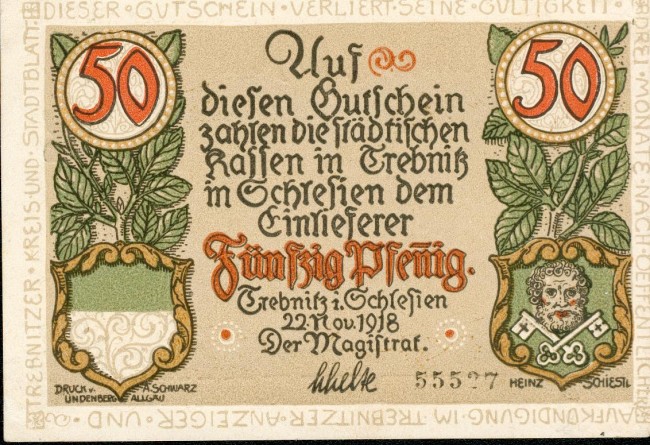 DIESER · GUTSCHEIN · VERLIERT · SEINE · GÜLTIGKEIT
DREI · MONATE · NACH · OEFFENTLICHER
AUFKÜNDIGUNG · IM · TREBNITZER · ANZEIGER · UND
TREBNITZER · KREIS · UND · STADTBLATT
50
50
Auf
diesen Gutschein
zahlen die städtischen
Kassen in Trebnitz
in Schlesien dem
Einlieferer
Fünfzig Pfen̄ig.
Trebnitz i. Schlesien
22. Nov. 1918
Der Magistrat.
55527
DRUCK v. A. SCHWARZ
LINDENBERG ALLGÄU
HEINZ SCHIESTL